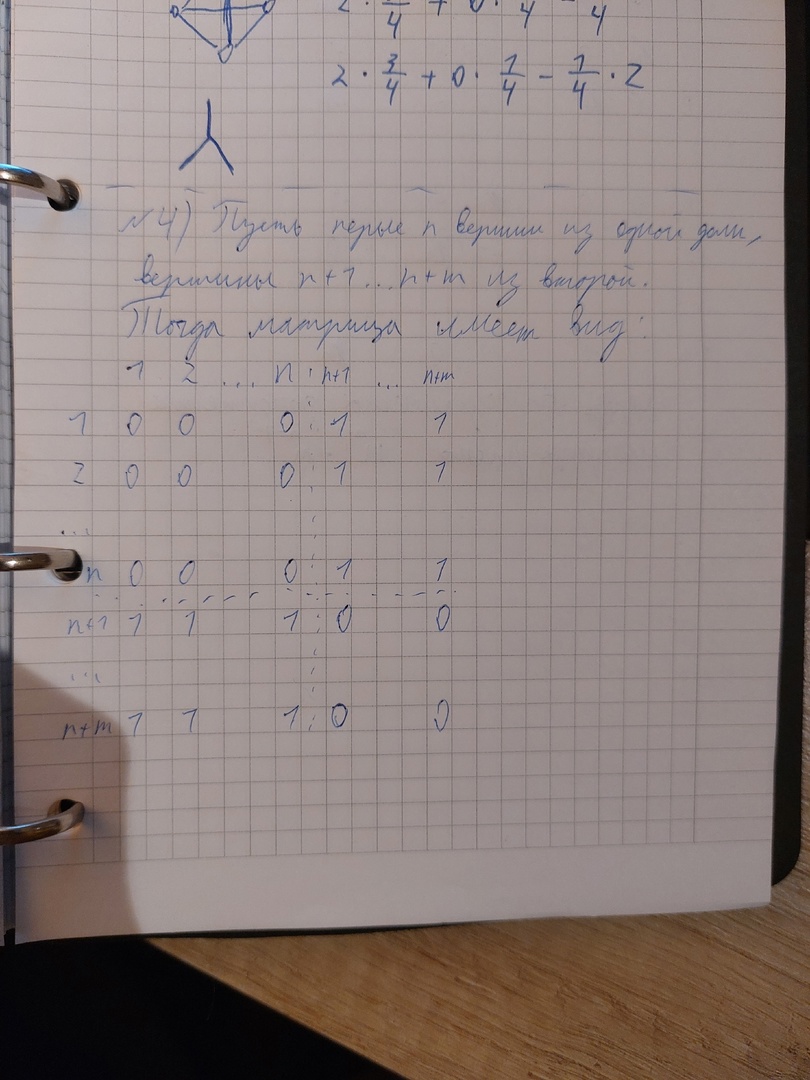 2 · 3/4 + 0 · 1/4 - 1/4 · 2
№4) Пусть первые n вершин из одной доли,
вершины n+1...n+m из второй.
Тогда матрица имеет вид:
1 2 ... n n+1 ... n+m
1 0 0 0 1 1
2 0 0 0 1 1
...
n 0 0 0 1 1
n+1 1 1 1 0 0
...
n+m 1 1 1 0 0